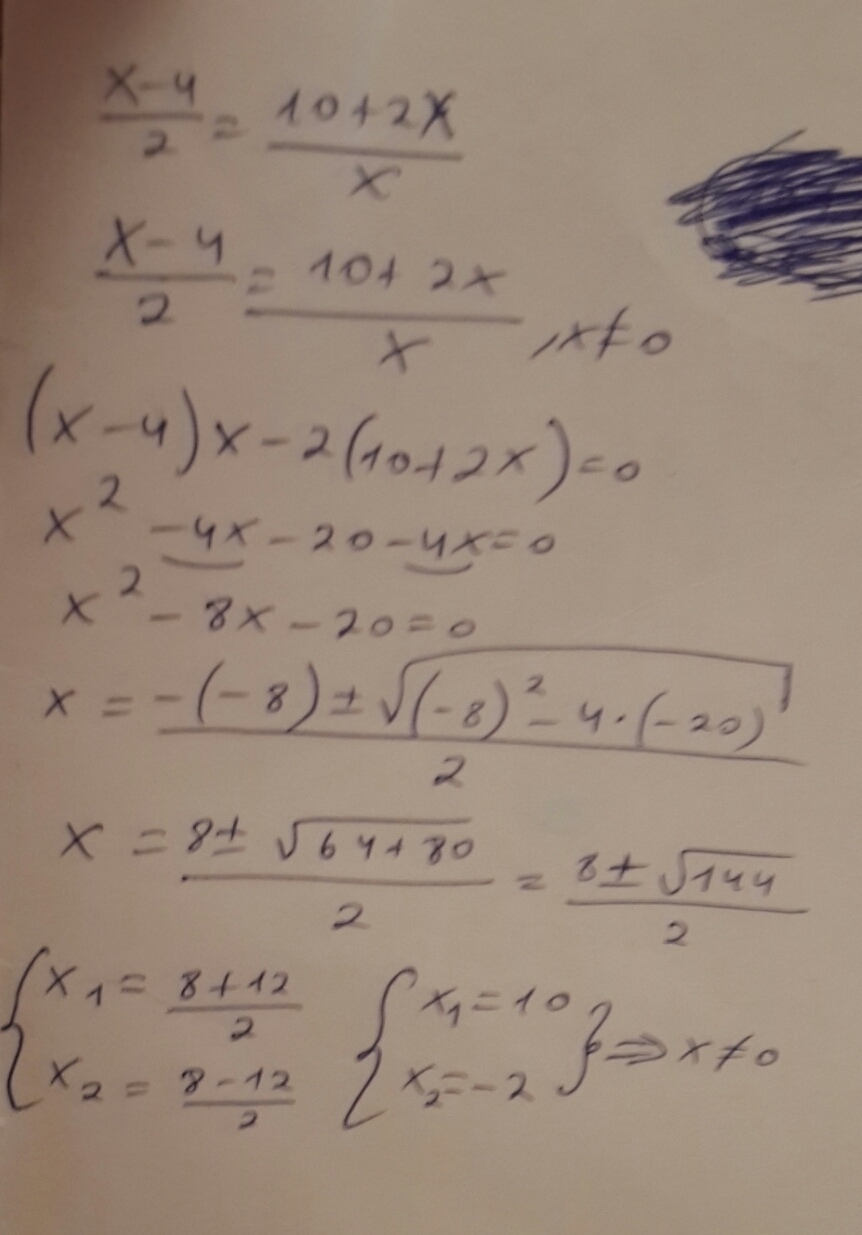 x-4/2 = 10+2x/x
x-4/2 = 10+2x/x , x≠0
(x-4)x-2(10+2x)=0
x²-4x-20-4x=0
x²-8x-20=0
x = -(-8)±√(-8)²-4·(-20)/2
x = 8±√64+80/2 = 8±√144/2
{x₁ = 8+12/2 {x₁=10
x₂ = 8-12/2 x₂=-2} ⇒ x≠0